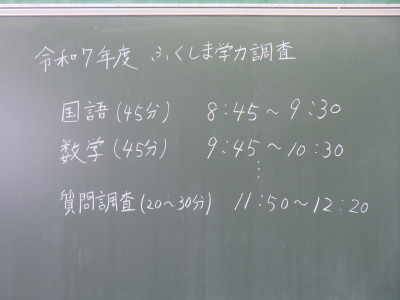 令和7年度 ふくしま学力調査
国語(45分) 8:45〜9:30
数学(45分) 9:45〜10:30
⋮
質問調査(20〜30分) 11:50〜12:20